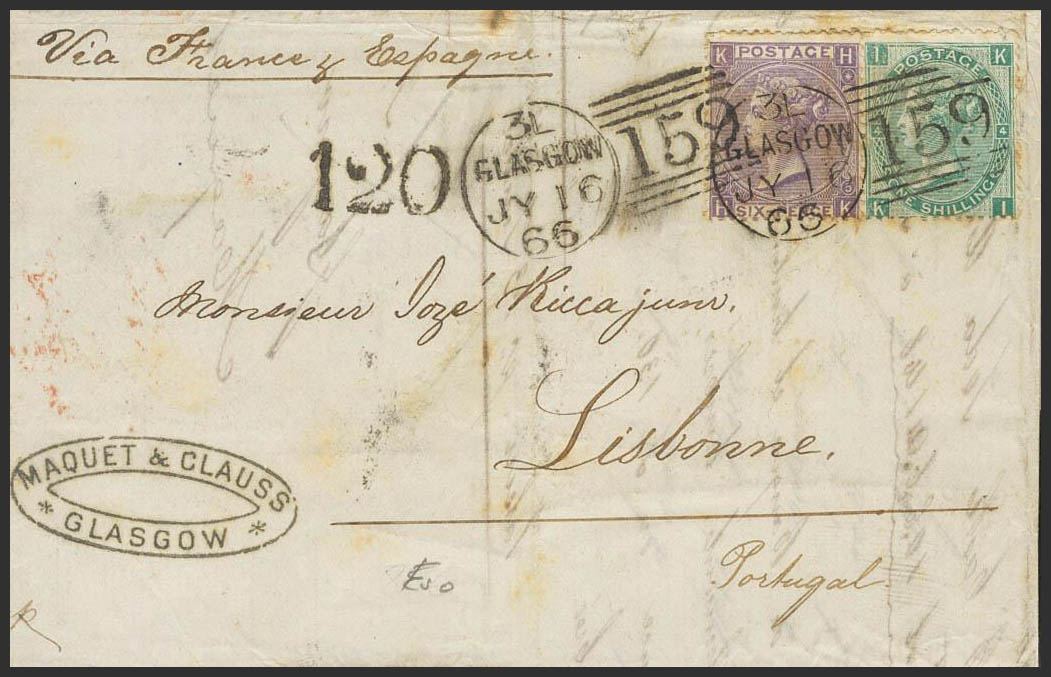 Via France & Espagne.
K POSTAGE H
SIX PENCE
H K
I POSTAGE K
4 4
ONE SHILLING
K I
120
3L
GLASGOW
JY 16
66
159
3L
GLASGOW
JY 16
66
159
Monsieur Jozé Ricca junr.
Lisbonne.
Portugal
MAQUET & CLAUSS
* GLASGOW *
£50